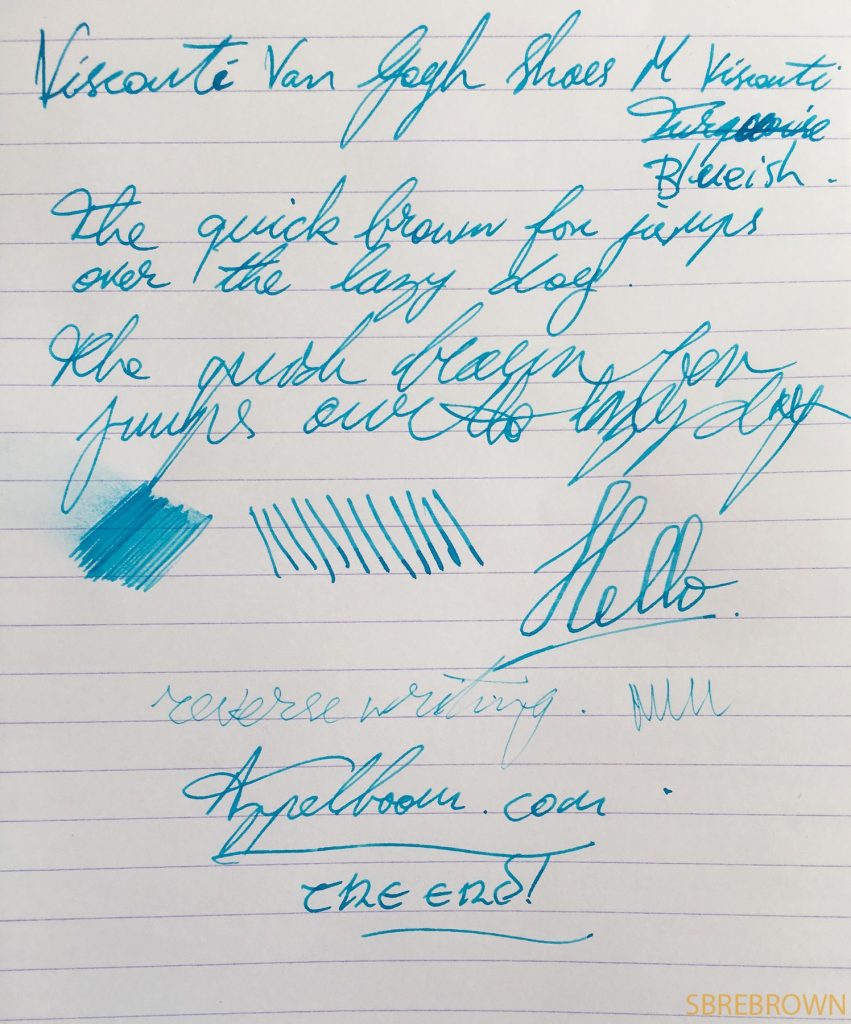 Visconti Van Gogh Shoes M Visconti
Turquoise
Blueish.
The quick brown fox jumps
over the lazy dog.
The quick brown fox
jumps over the lazy dog
Hello.
reverse writing.
Appelboom.com
THE END!
SBREBROWN